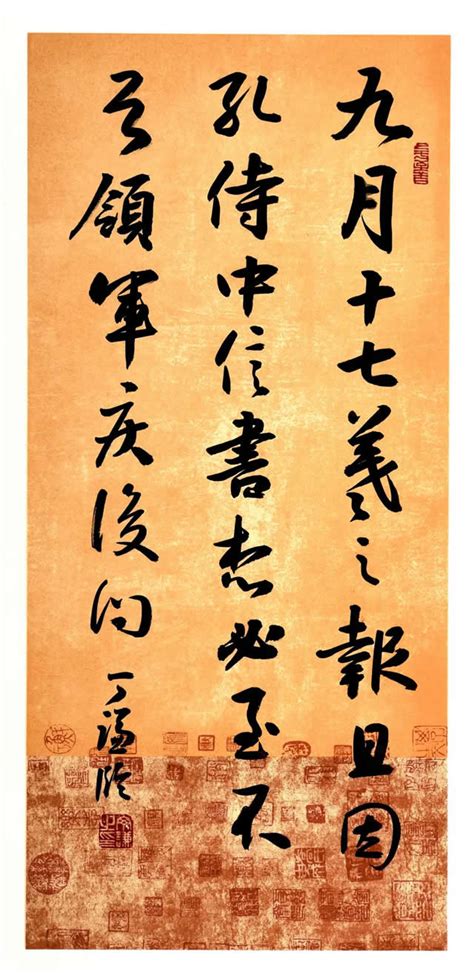 九月十七羲之報且因
孔侍中信書想必至不
知領軍疾後問
丁謙臨